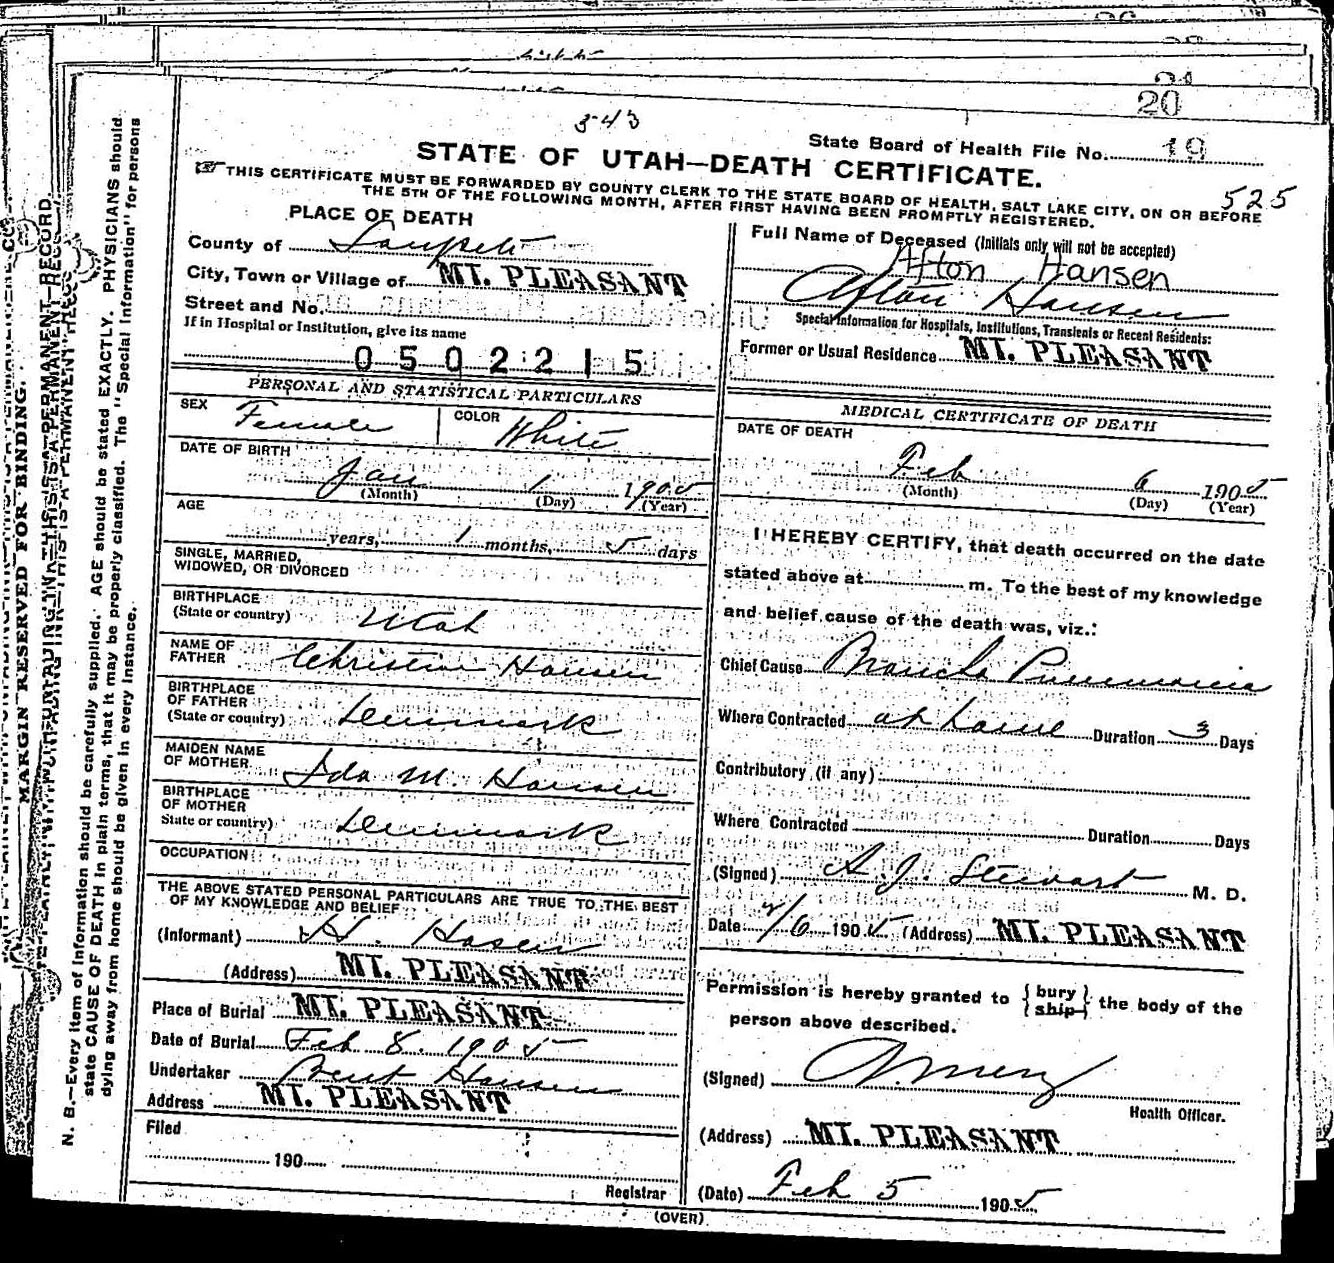 20
543
State Board of Health File No. 19
STATE OF UTAH—DEATH CERTIFICATE.
525
THIS CERTIFICATE MUST BE FORWARDED BY COUNTY CLERK TO THE STATE BOARD OF HEALTH, SALT LAKE CITY, ON OR BEFORE
THE 5TH OF THE FOLLOWING MONTH, AFTER FIRST HAVING BEEN PROMPTLY REGISTERED.
PLACE OF DEATH
County of Sanpete
City, Town or Village of MT. PLEASANT
Street and No.
If in Hospital or Institution, give its name
0502215
PERSONAL AND STATISTICAL PARTICULARS
SEX Female COLOR White
DATE OF BIRTH
Jan 1 1905
(Month) (Day) (Year)
AGE
years, 1 months, 5 days
SINGLE, MARRIED,
WIDOWED, OR DIVORCED
BIRTHPLACE
(State or country) Utah
NAME OF
FATHER Christian Hansen
BIRTHPLACE
OF FATHER
(State or country) Denmark
MAIDEN NAME
OF MOTHER Ida M. Hansen
BIRTHPLACE
OF MOTHER
State or country) Denmark
OCCUPATION
THE ABOVE STATED PERSONAL PARTICULARS ARE TRUE TO THE BEST
OF MY KNOWLEDGE AND BELIEF
(Informant) H. Hasen
(Address) MT. PLEASANT
Place of Burial MT. PLEASANT
Date of Burial Feb 8. 1905
Undertaker Bent Hansen
Address MT. PLEASANT
Filed
190
Registrar
(OVER)
Full Name of Deceased (Initials only will not be accepted)
Afton Hansen
Afton Hansen
Special Information for Hospitals, Institutions, Transients or Recent Residents:
Former or Usual Residence MT. PLEASANT
MEDICAL CERTIFICATE OF DEATH
DATE OF DEATH
Feb 6 1905
(Month) (Day) (Year)
I HEREBY CERTIFY, that death occurred on the date
stated above at m. To the best of my knowledge
and belief cause of the death was, viz.:
Chief Cause Broncho Pneumonia
Where Contracted at home Duration 3 Days
Contributory (if any)
Where Contracted Duration Days
(Signed) A. J. Stewart M. D.
Date 2/6 1905 (Address) MT. PLEASANT
Permission is hereby granted to { bury ship } the body of the
person above described.
(Signed)
Health Officer.
(Address) MT. PLEASANT
(Date) Feb 5 1905
MARGIN RESERVED FOR BINDING.
N. B.—Every item of information should be carefully supplied. AGE should be stated EXACTLY. PHYSICIANS should
state CAUSE OF DEATH in plain terms, that it may be properly classified. The "Special Information" for persons
dying away from home should be given in every instance.